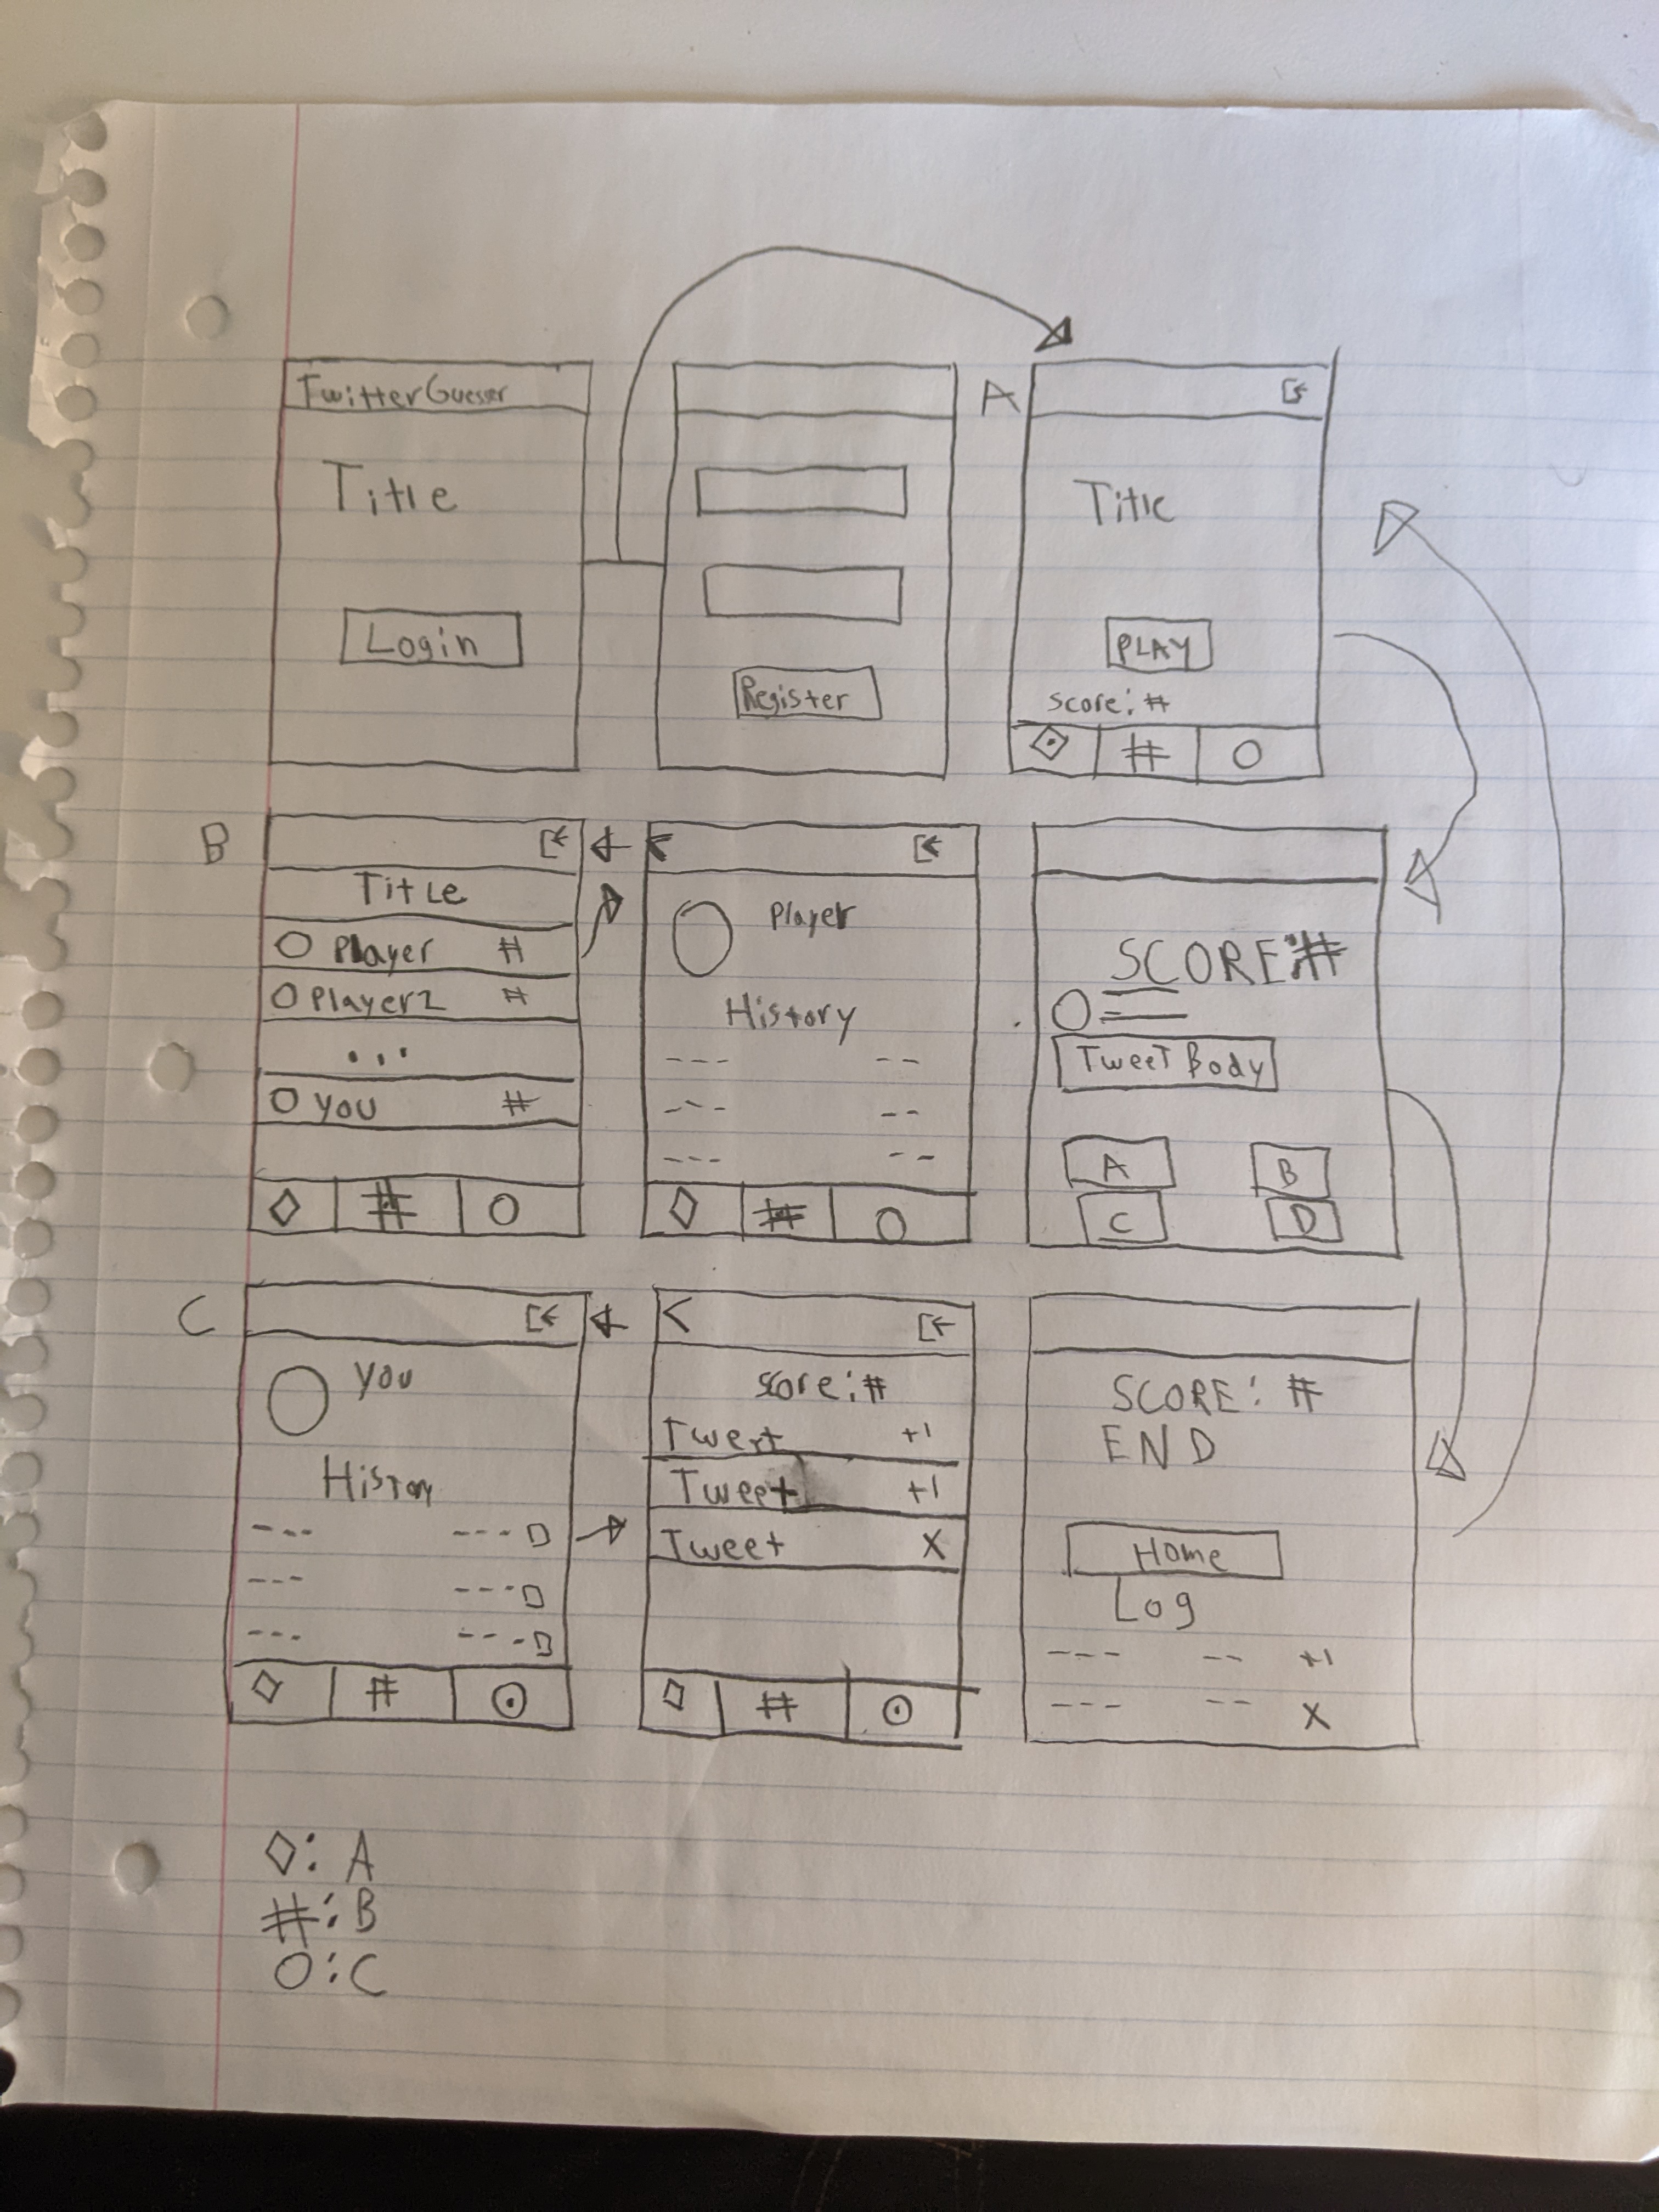 TwitterGuesser
Title
Login
Register
A
Title
PLAY
score: #
#
B
Title
Player #
Player2 #
...
You #
#
Player
History
#
SCORE: #
Tweet Body
A B
C D
C
You
History
#
<
score: #
Tweet +1
Tweet +1
Tweet X
#
SCORE: #
END
Home
Log
+1
X
◇: A
#: B
O: C